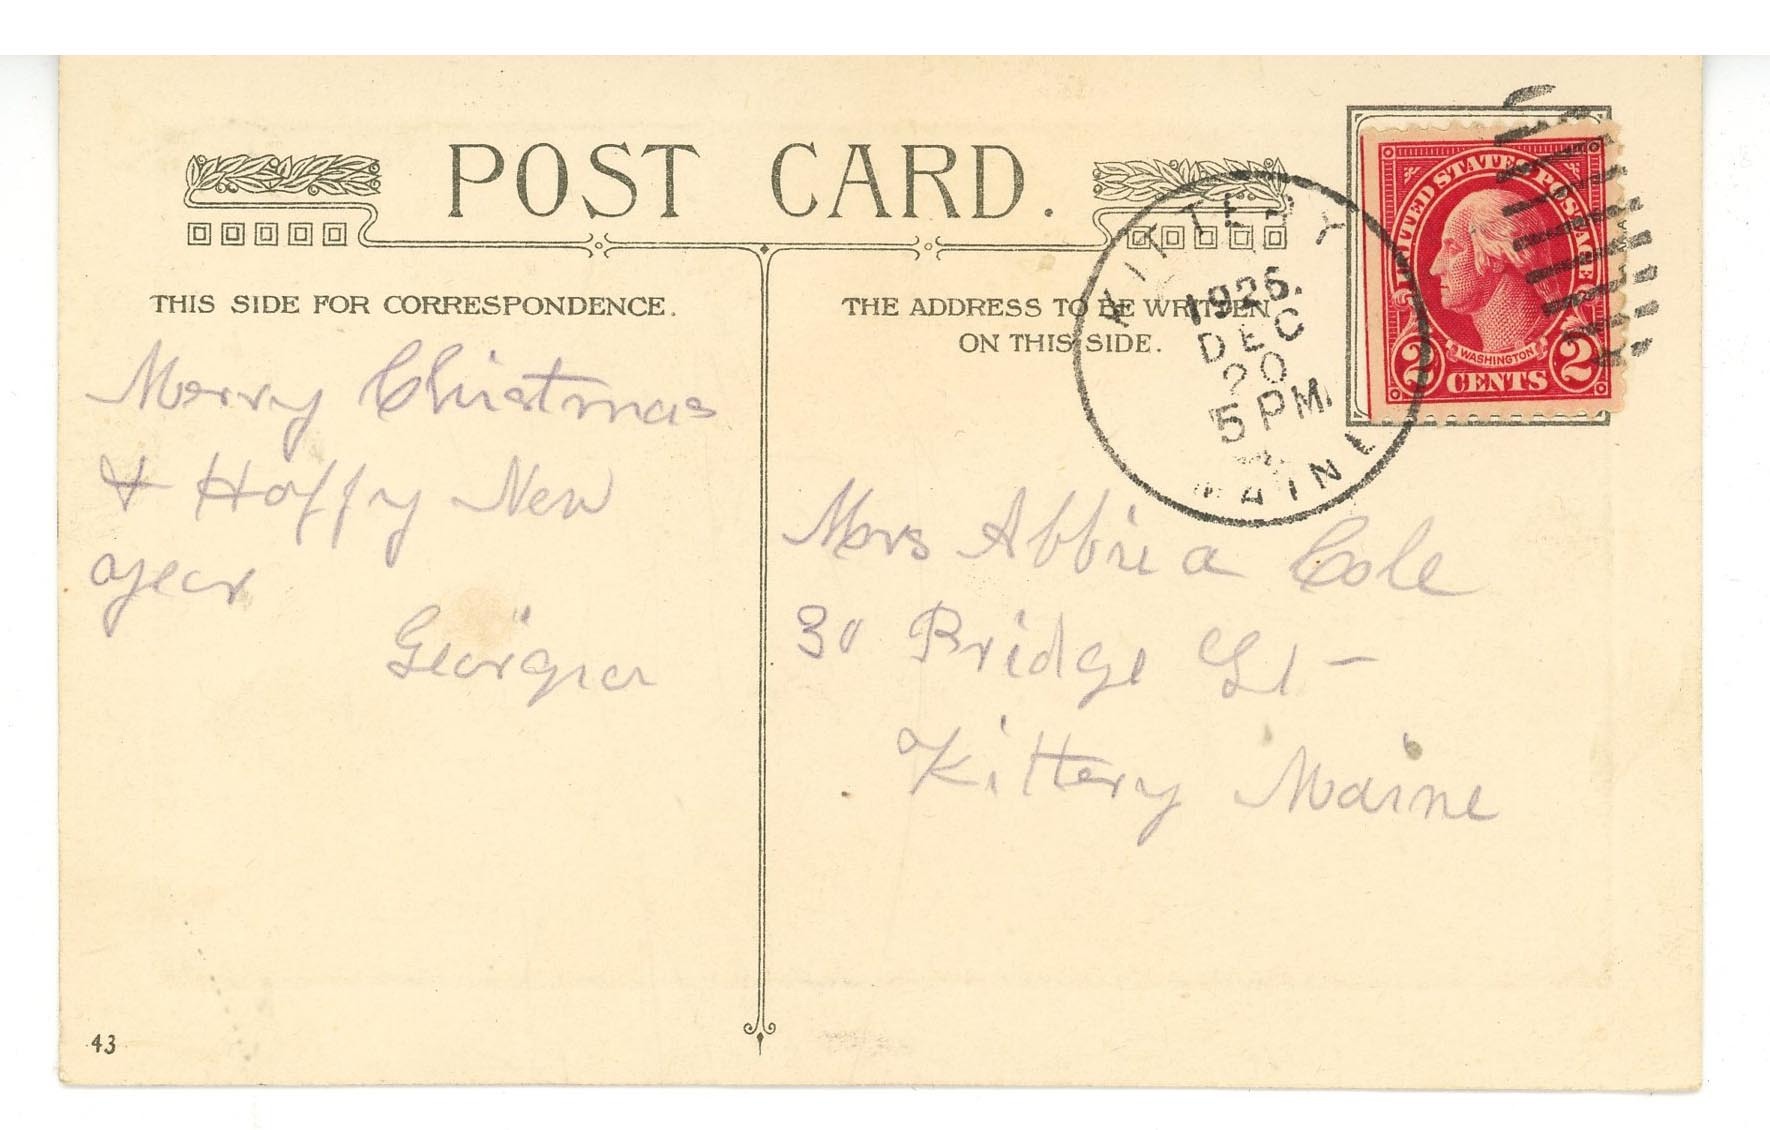 POST CARD.
THIS SIDE FOR CORRESPONDENCE.
Merry Christmas
& Happy New
year
Georgia
THE ADDRESS TO BE WRITTEN
ON THIS SIDE.
KITTERY
DEC
20
5 PM
MAINE
UNITED STATES POSTAGE
WASHINGTON
2 CENTS 2
Mrs Abbie a Cole
30 Bridge St -
Kittery Maine
43